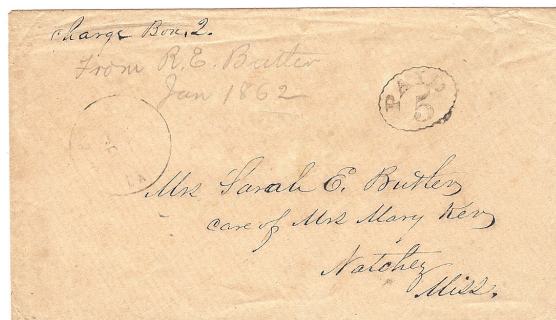 Charge Box, 2.
From R. E. Butler
Jan 1862
PAID
5
LA
Mrs Sarah E. Butler
care of Mrs Mary Ker
Natchez
Miss.